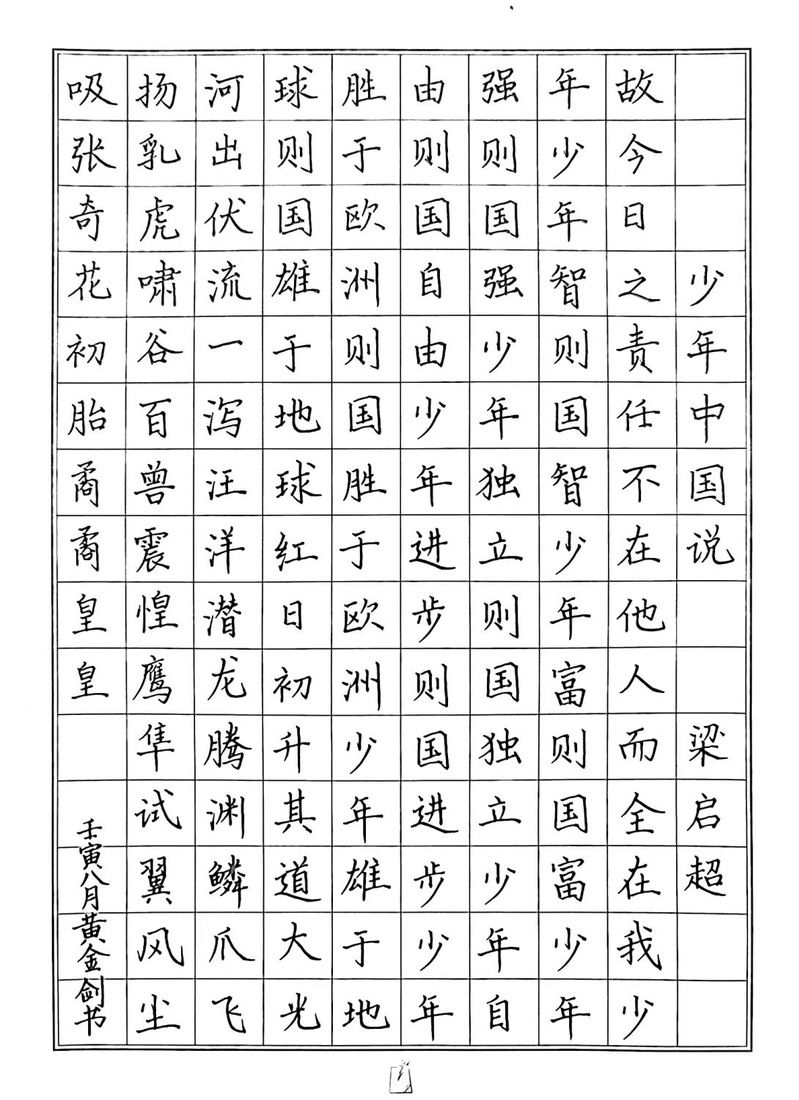 少年中国说 梁启超
故今日之责任不在他人而全在我少
年少年智则国智少年富则国富少年
强则国强少年独立则国独立少年自
由则国自由少年进步则国进步少年
胜于欧洲则国胜于欧洲少年雄于地
球则国雄于地球红日初升其道大光
河出伏流一泻汪洋潜龙腾渊鳞爪飞
扬乳虎啸谷百兽震惶鹰隼试翼风尘
吸张奇花初胎矞矞皇皇
壬寅八月黄金剑书